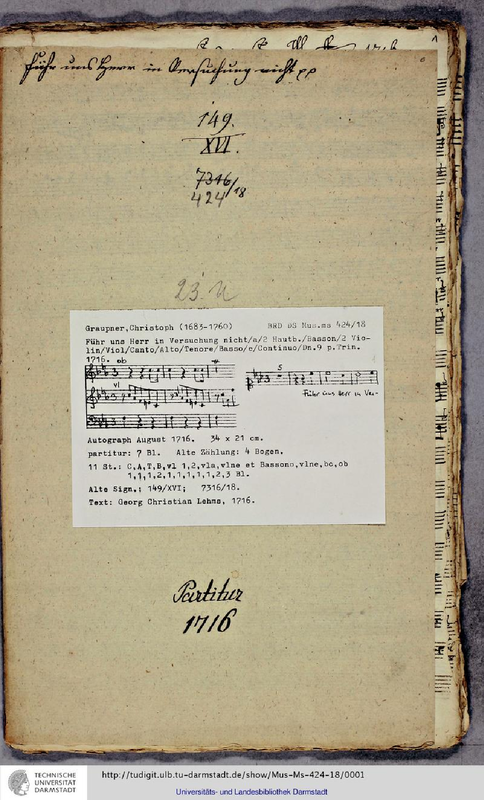 1716
Führ uns Herr in Versuchung nicht pp
149.
XVI.
7316/18
424
23. U
Graupner,Christoph (1683-1760) BRD DS Mus.ms 424/18
Führ uns Herr in Versuchung nicht/a/2 Hautb./Basson/2 Vio-
lin/Viol/Canto/Alto/Tenore/Basso/e/Continuo/Dn.9 p.Trin.
1716. ob
5
vl
Führ uns Herr in Ver-
Autograph August 1716. 34 x 21 cm.
partitur: 7 Bl. Alte Zählung: 4 Bogen.
11 St.: C,A,T,B,vl 1,2,vla,vlne et Bassono,vlne,bc,ob
1,1,1,2,1,1,1,1,1,2,3 Bl.
Alte Sign.: 149/XVI; 7316/18.
Text: Georg Christian Lehms, 1716.
Partitur
1716
TECHNISCHE
UNIVERSITÄT
DARMSTADT
http://tudigit.ulb.tu-darmstadt.de/show/Mus-Ms-424-18/0001
Universitäts- und Landesbibliothek Darmstadt